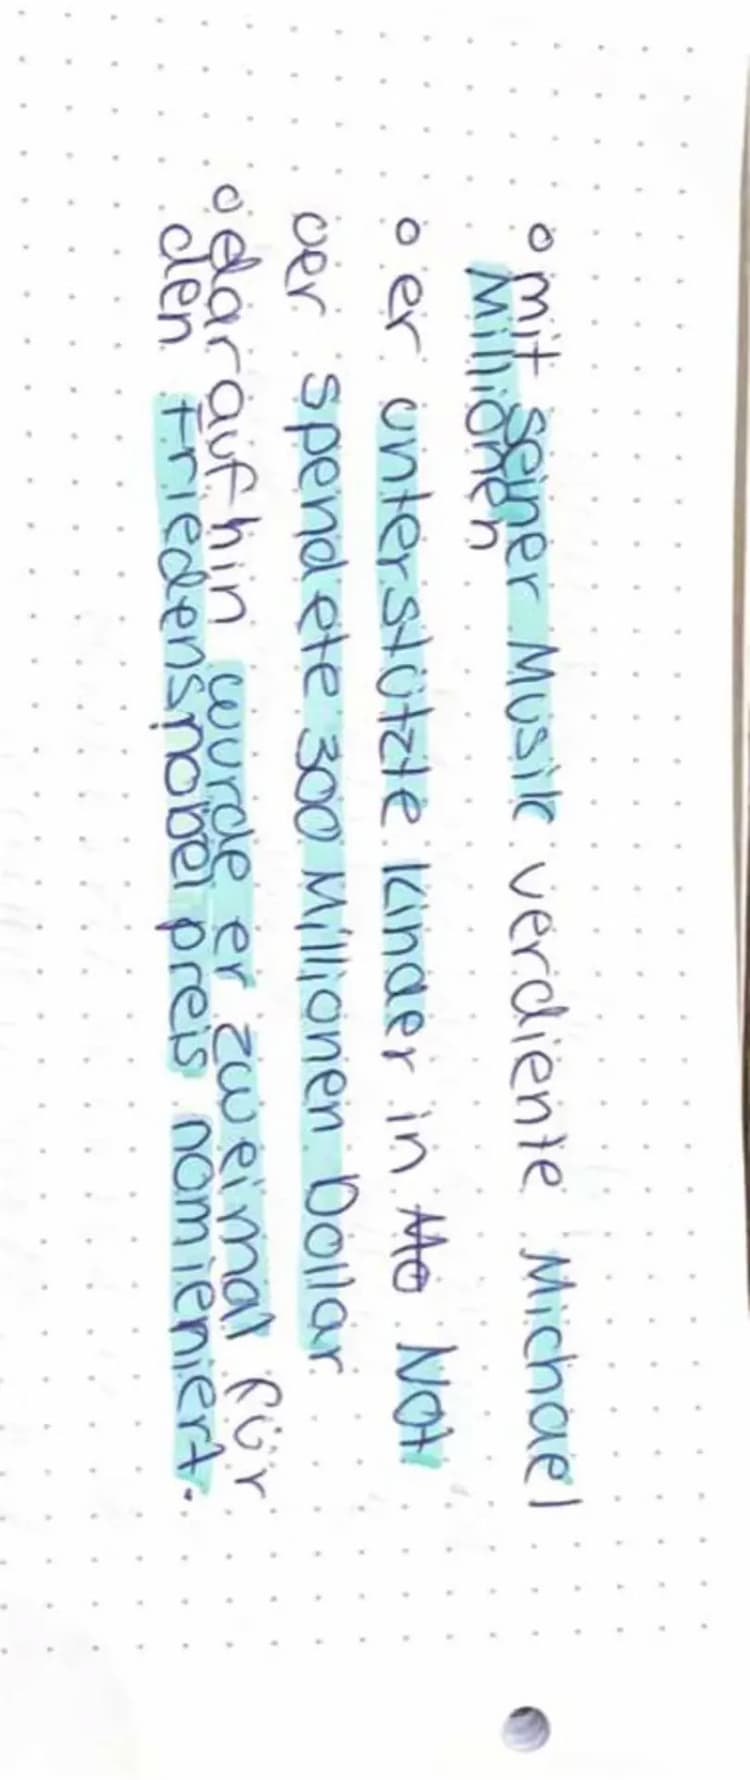 o mit seiner Musik verdiente Michael
Millionen
o er unterstützte Kinder in Not
oer spendete 300 Millionen Dollar
o darauf hin wurde er zweimal für
den Friedensnobelpreis nomieniert.